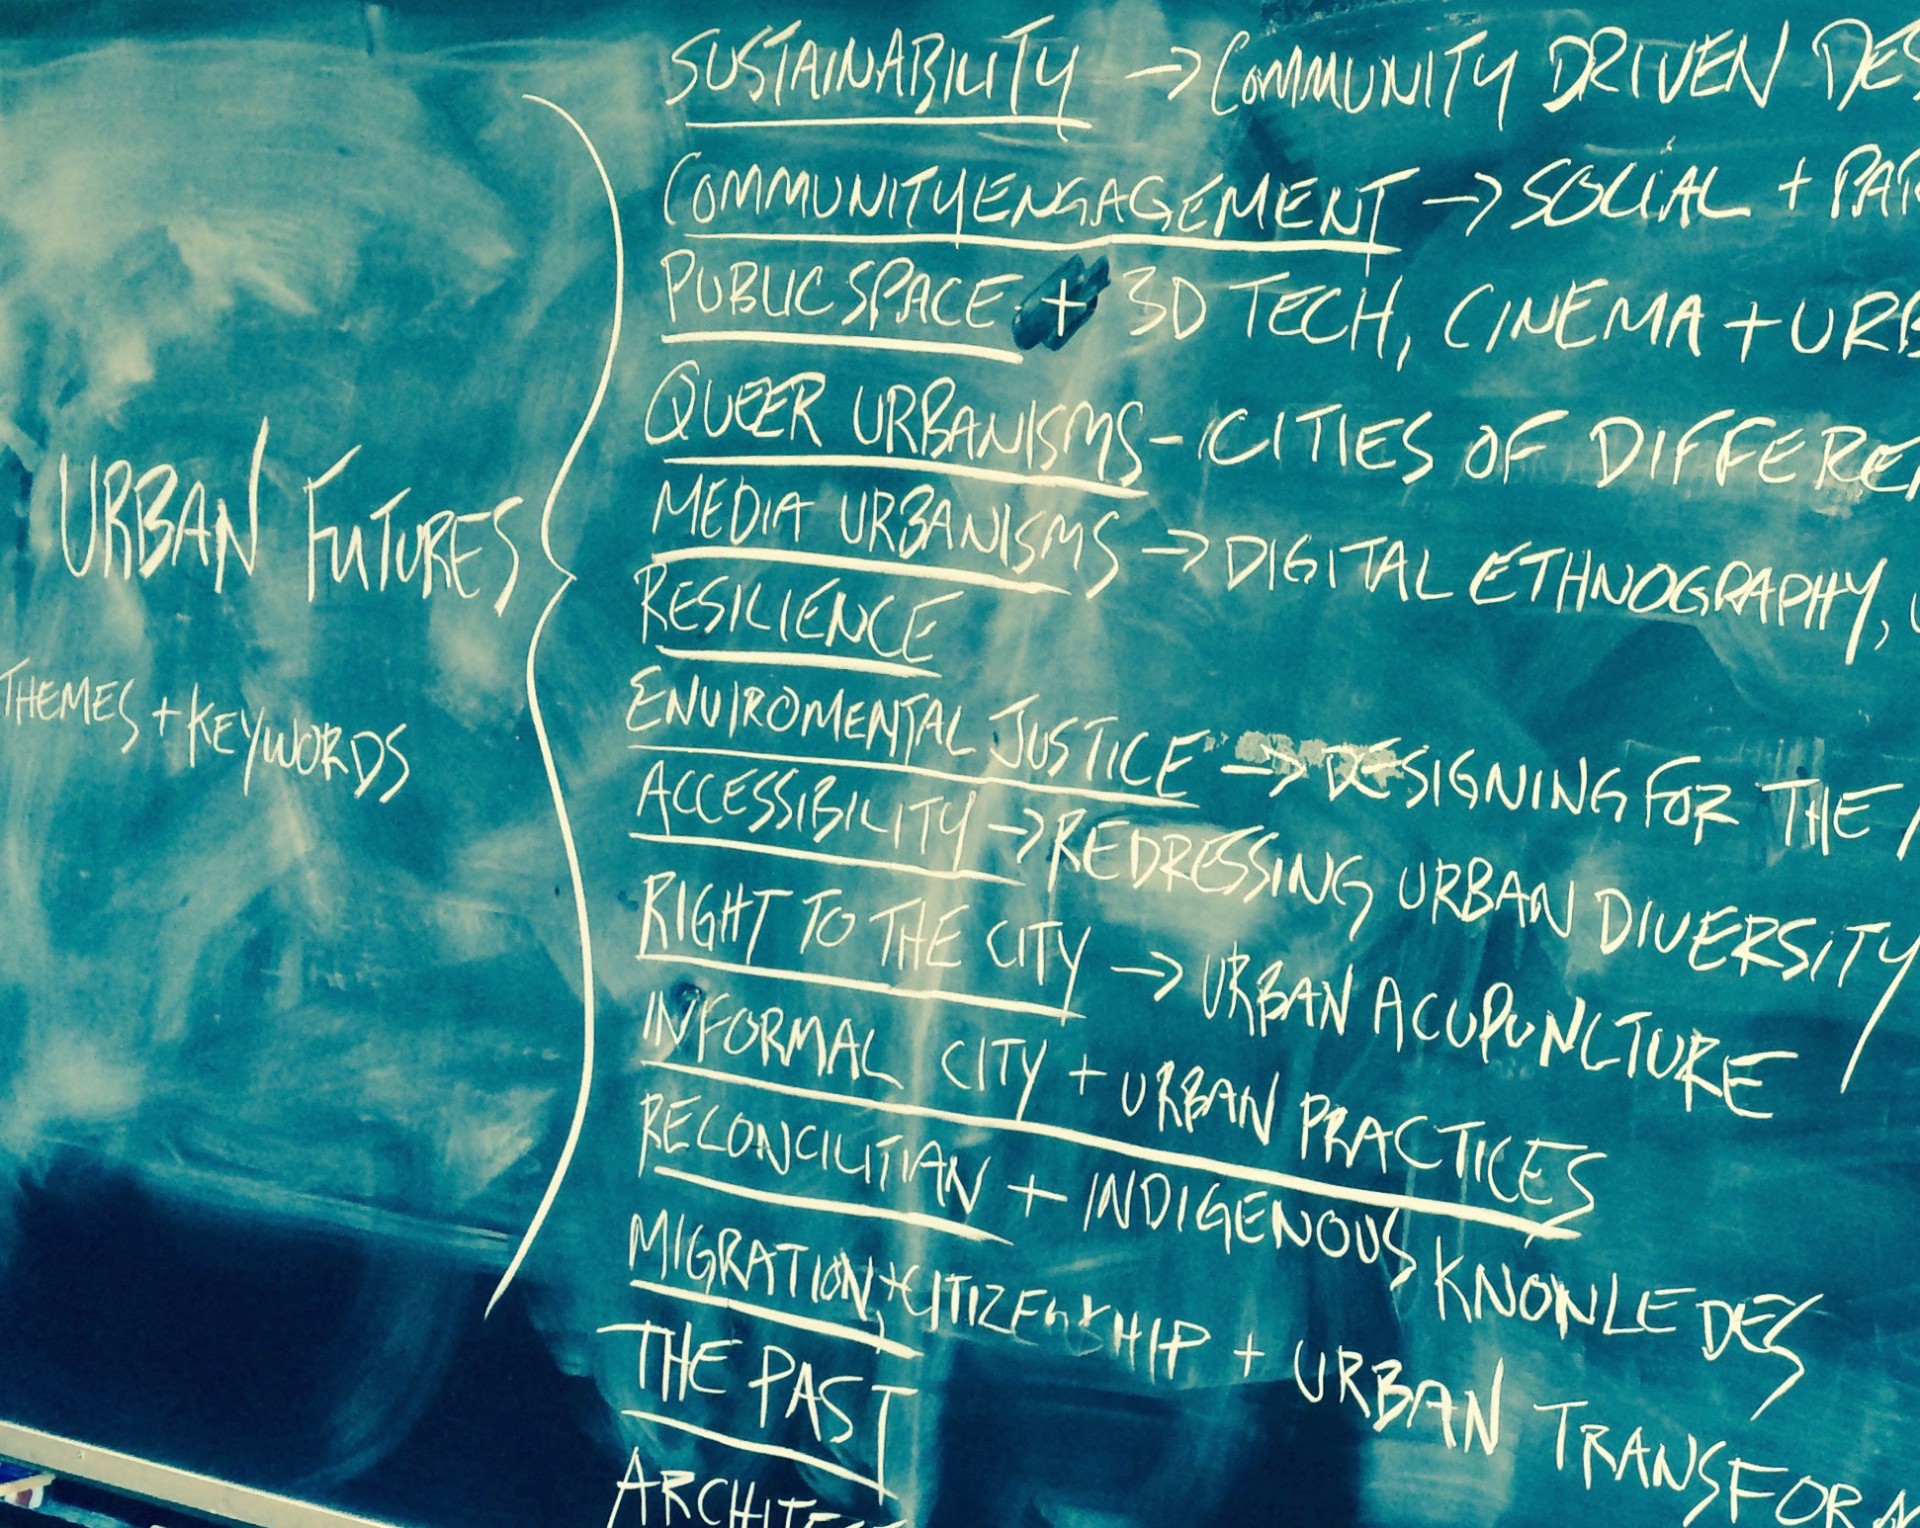 SUSTAINABILITY → COMMUNITY DRIVEN DES
COMMUNITY ENGAGEMENT → SOCIAL + PAR
PUBLIC SPACE + 3D TECH, CINEMA + URB
QUEER URBANISMS - CITIES OF DIFFEREN
MEDIA URBANISMS → DIGITAL ETHNOGRAPHY,
RESILIENCE
ENVIROMENTAL JUSTICE → DESIGNING FOR THE
ACCESSIBILITY → REDRESSING URBAN DIVERSITY
RIGHT TO THE CITY → URBAN ACUPUNCTURE
INFORMAL CITY + URBAN PRACTICES
RECONCILITIAN + INDIGENOUS KNOWLEDES
MIGRATION, + CITIZENSHIP + URBAN TRANSFORM
THE PAST
ARCHITEC
URBAN FUTURES
THEMES + KEYWORDS